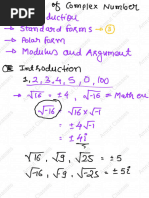 of Complex Number
duction
→ Standard forms → 3
→ Polar form
→ Modulus and Argument
Introduction
1, 2, 3, 4, 5, 0, 100
→ √16 = ±4, √-16 = Math err
√-16
= √16 x √-1
= ±4 √-1
= ±4i
√16, √9, √25 = ±5
√-16, √-9, √-25 = ±5i